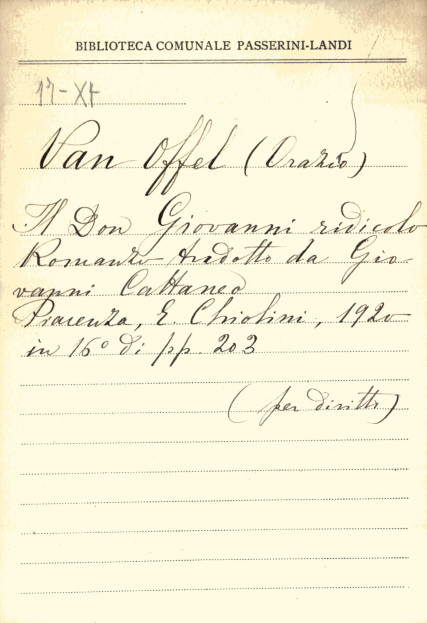 BIBLIOTECA COMUNALE PASSERINI-LANDI
Van Offel (Orazio)
Il Don Giovanni ridicolo
Romanzo tradotto da Gio-
vanni Cattaneo
Piacenza, E. Chiolini, 1920
in 16° di pp. 203
(per diritti)